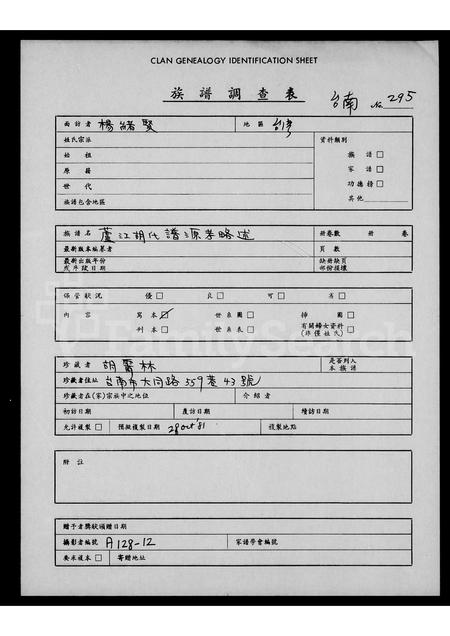 CLAN GENEALOGY IDENTIFICATION SHEET
族譜調查表 台南 No. 295
面訪者 楊緒賢 地區
姓氏宗派 資料類別
始祖 族譜 □
原籍 家譜 □
世代 功德榜 □
族譜包含地區 其他
族譜名 蘆江胡氏譜源崇略述 冊卷數 冊 卷
最新版本編纂者 頁數
最新出版年份 缺冊缺頁
或手稿日期 部份損壞
保管狀況 優 □ 良 □ 可 □ 劣 □
內容 寫本 ☑ 世系圖 □ 掃圖 □
刊本 □ 世系表 □ 有關婦女資料 □
(非僅姓氏)
珍藏者 胡霽林 是否列入
本族譜
珍藏者住址 台南市大同路559巷43號
珍藏者在(家)宗族中之地位 介紹者
初訪日期 覆訪日期 續訪日期
允許複製 □ 預擬複製日期 28 Oct '81 複製地點
附註
贈予者獎狀頒贈日期
攝影者編號 A128-12 家譜學會編號
要求複本 □ 寄贈地址
FamilySearch